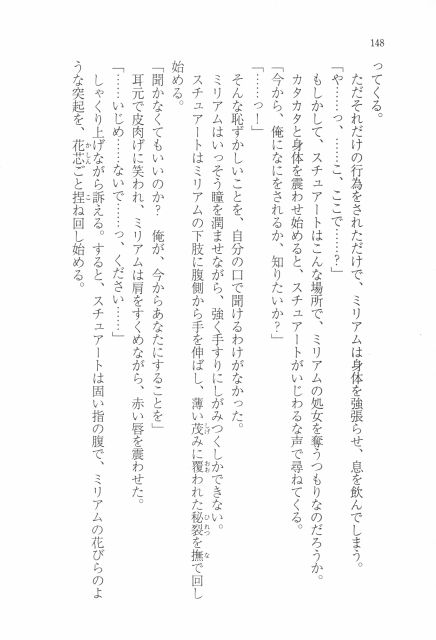 148
ってくる。
ただそれだけの行為をされただけで、ミリアムは身体を強張らせ、息を飲んでしまう。
「や……っ、……こ、ここで……？」
もしかして、スチュアートはこんな場所で、ミリアムの処女を奪うつもりなのだろうか。
カタカタと身体を震わせ始めると、スチュアートがいじわるな声で尋ねてくる。
「今から、俺になにをされるか、知りたいか？」
「……っ！」
そんな恥ずかしいことを、自分の口で聞けるわけがなかった。
ミリアムはいっそう瞳を潤ませながら、強く手すりにしがみつくしかできない。
スチュアートはミリアムの下肢に腹側から手を伸ばし、薄い茂みに覆われた秘裂を撫で回し
始める。
「聞かなくてもいいのか？　俺が、今からあなたにすることを」
耳元で皮肉げに笑われ、ミリアムは肩をすくめながら、赤い唇を震わせた。
「……いじめ……ないで……っ、ください……」
しゃくり上げながら訴える。すると、スチュアートは固い指の腹で、ミリアムの花びらのよ
うな突起を、花芯ごと捏ね回し始める。